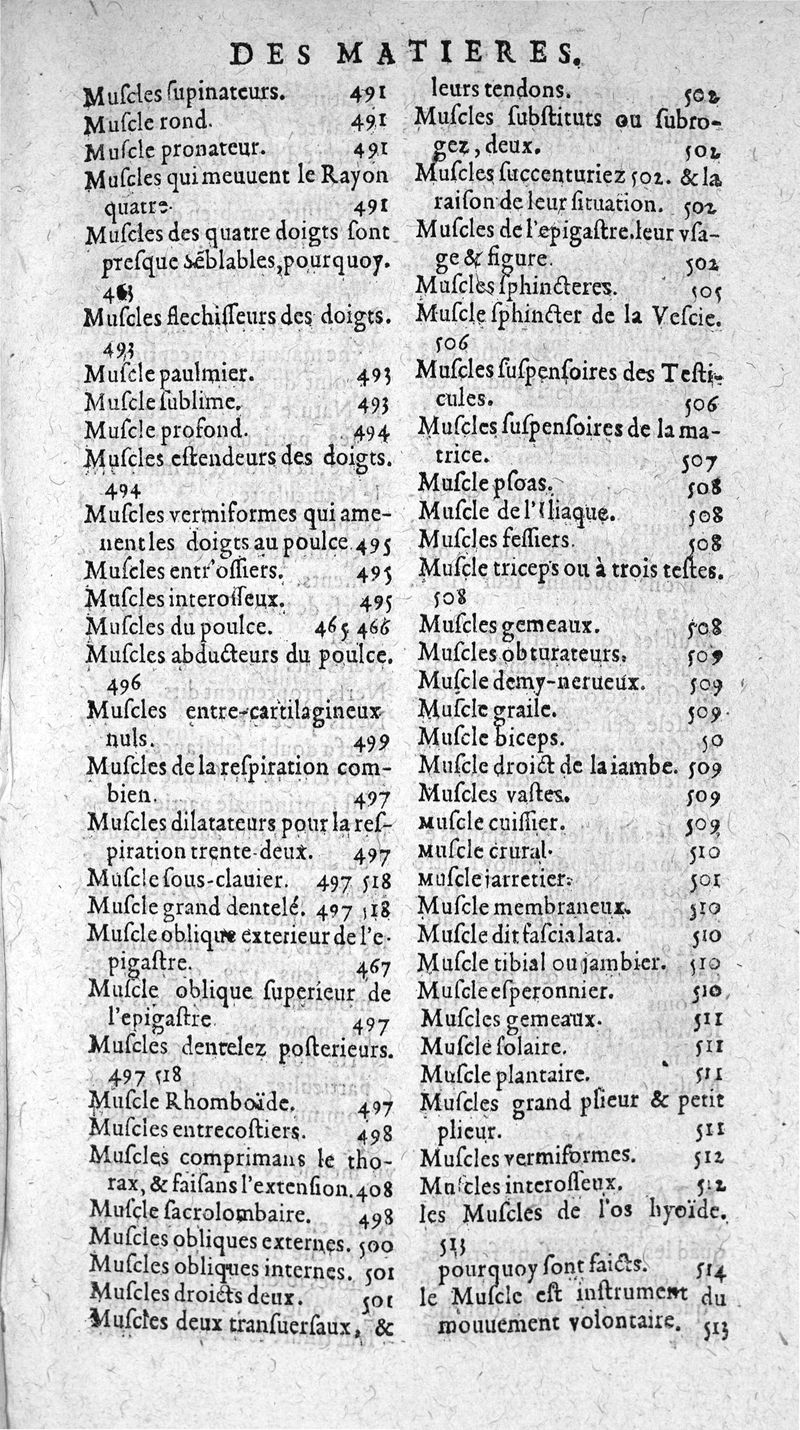 DES MATIERES.
Muſcles ſupinateurs. 491
Muſcle rond. 491
Muſcle pronateur. 491
Muſcles qui meuuent le Rayon
quatre. 491
Muſcles des quatre doigts ſont
preſque sẽblables, pourquoy.
Muſcles flechiſſeurs des doigts.
493
Muſcle paulmier. 493
Muſcle ſublime. 493
Muſcle profond. 494
Muſcles eſtendeurs des doigts.
494
Muſcles vermiformes qui ame-
nent les doigts au poulce 495
Muſcles entr'oſſiers. 495
Muſcles interoſſeux. 495
Muſcles du poulce. 465 466
Muſcles abducteurs du poulce.
496
Muſcles entre-cartilagineux
nuls. 499
Muſcles de la reſpiration com-
bien. 497
Muſcles dilatateurs pour la reſ-
piration trente-deux. 497
Muſcle ſous-clauier. 497 518
Muſcle grand dentelé. 497 518
Muſcle oblique exterieur de l'e-
pigaſtre. 467
Muſcle oblique ſuperieur de
l'epigaſtre 497
Muſcles dentelez poſterieurs.
497 518
Muſcle Rhomboïde. 497
Muſcles entrecoſtiers. 498
Muſcles comprimans le tho-
rax, & faiſans l'extenſion. 408
Muſcle ſacrolombaire. 498
Muſcles obliques externes. 500
Muſcles obliques internes. 501
Muſcles droicts deux. 501
Muſcles deux tranſuerſaux, &
leurs tendons. 502
Muſcles ſubſtituts ou ſubro-
gez, deux. 502
Muſcles ſuccenturiez 502. & la
raiſon de leur ſituation. 502
Muſcles de l'epigaſtre.leur vſa-
ge & figure. 502
Muſcles ſphincteres. 505
Muſcle ſphincter de la Veſcie.
506
Muſcles ſuſpenſoires des Teſti-
cules. 506
Muſcles ſuſpenſoires de la ma-
trice. 507
Muſcle pſoas. 508
Muſcle de l'Iliaque. 508
Muſcles feſſiers. 508
Muſcle triceps ou à trois teſtes.
508
Muſcles gemeaux. 508
Muſcles obturateurs. 509
Muſcle demy-nerueux. 509
Muſcle graile. 509
Muſcle biceps. 50
Muſcle droict de la iambe. 509
Muſcles vaſtes. 509
Muſcle cuiſſier. 509
Muſcle crural. 510
Muſcle iarretier. 501
Muſcle membraneux. 510
Muſcle dit faſcia lata. 510
Muſcle tibial ou jambier. 510
Muſcle eſperonnier. 510
Muſcles gemeaux. 511
Muſcle ſolaire. 511
Muſcle plantaire. 511
Muſcles grand plieur & petit
plieur. 511
Muſcles vermiformes. 512
Muſcles interoſſeux. 512
les Muſcles de l'os hyoïde.
513
pourquoy ſont faicts. 514
le Muſcle eſt inſtrument du
mouuement volontaire. 513